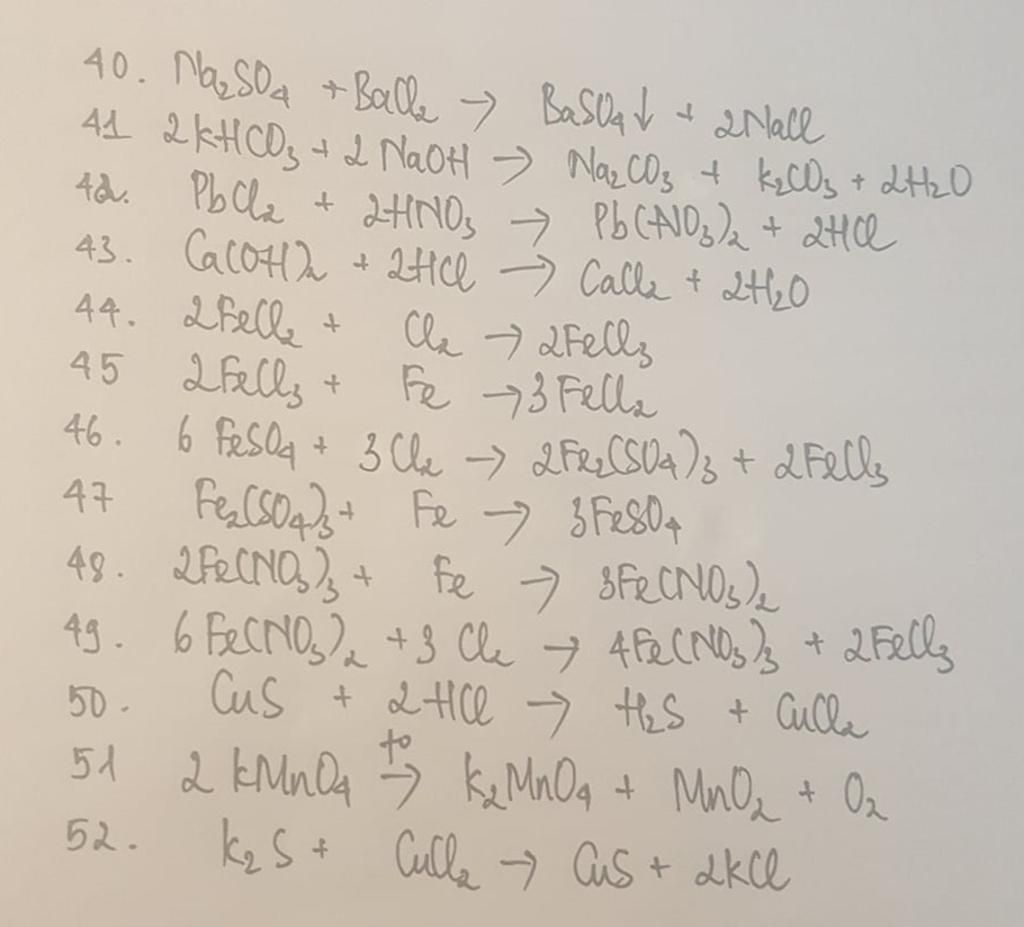 40. Na₂SO₄ + BaCl₂ → BaSO₄↓ + 2NaCl
41 2KHCO₃ + 2NaOH → Na₂CO₃ + K₂CO₃ + 2H₂O
42. PbCl₂ + 2HNO₃ → Pb(NO₃)₂ + 2HCl
43. Ca(OH)₂ + 2HCl → CaCl₂ + 2H₂O
44. 2FeCl₂ + Cl₂ → 2FeCl₃
45 2FeCl₃ + Fe → 3FeCl₂
46. 6FeSO₄ + 3Cl₂ → 2Fe₂(SO₄)₃ + 2FeCl₃
47 Fe₂(SO₄)₃ + Fe → 3FeSO₄
48. 2Fe(NO₃)₃ + Fe → 3Fe(NO₃)₂
49. 6Fe(NO₃)₂ + 3Cl₂ → 4Fe(NO₃)₃ + 2FeCl₃
50. CuS + 2HCl → H₂S + CuCl₂
51 2KMnO₄ t° → K₂MnO₄ + MnO₂ + O₂
52. K₂S + CuCl₂ → CuS + 2KCl